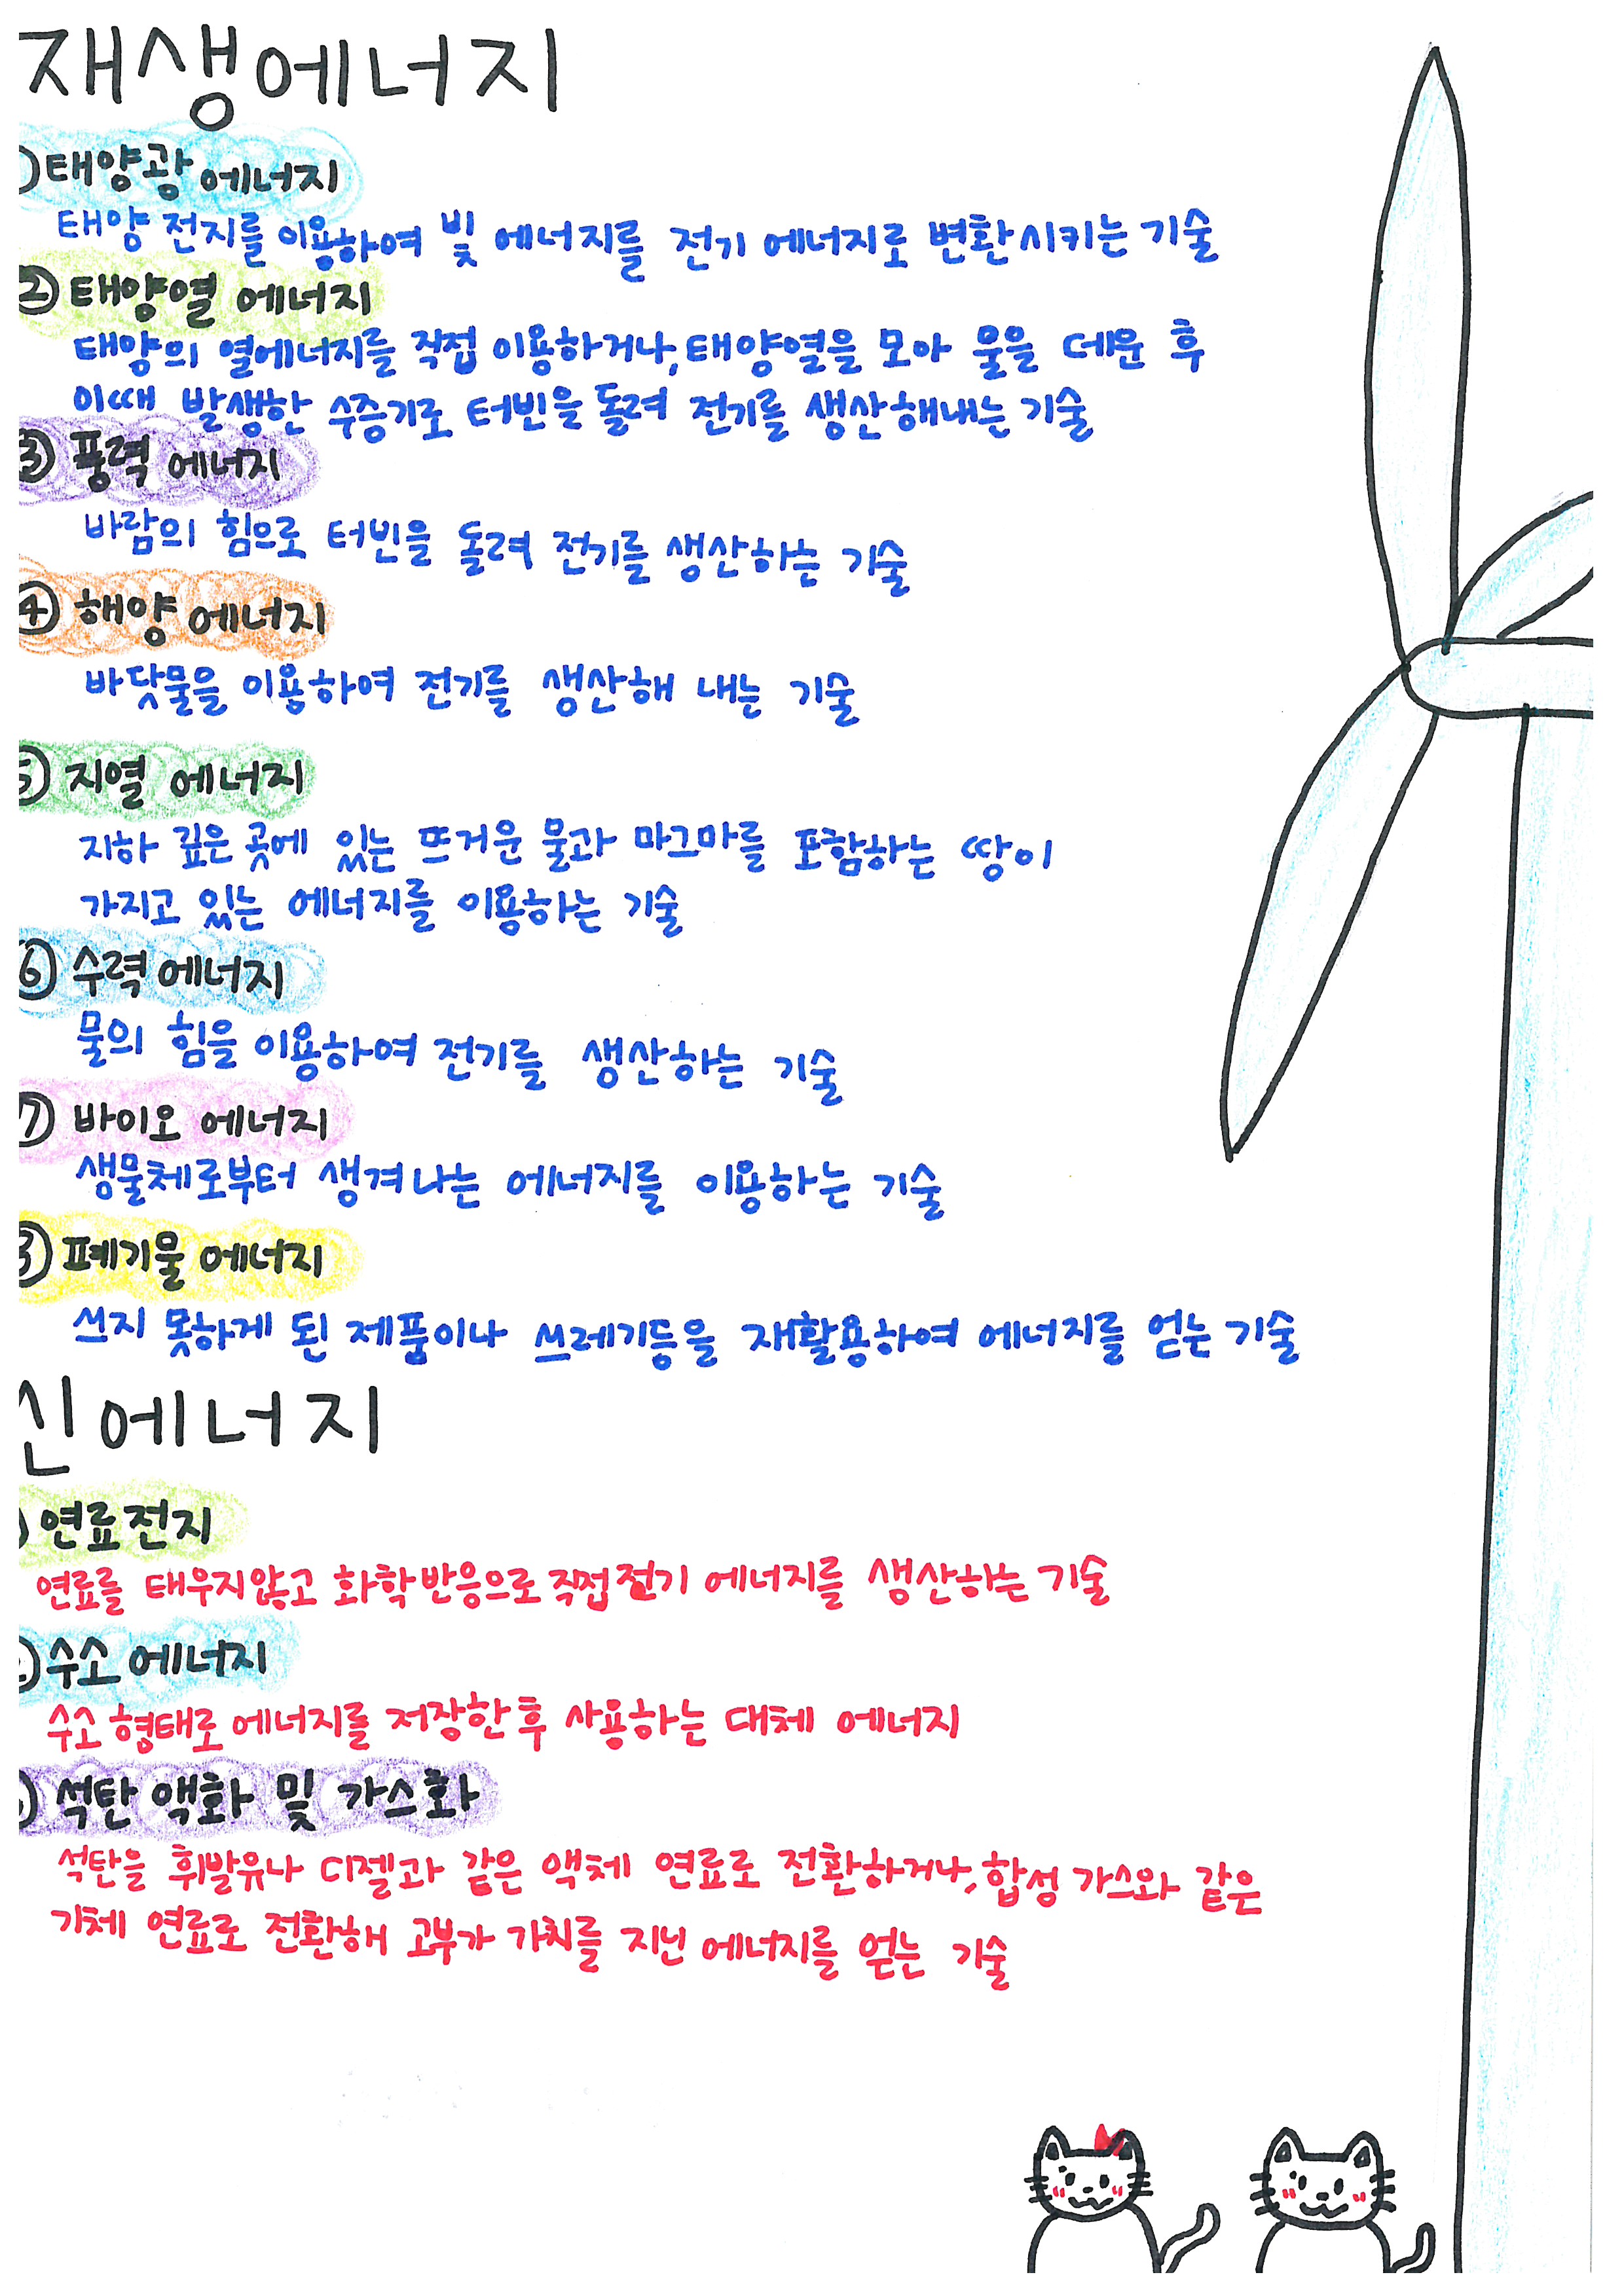 재생에너지
①태양광 에너지
태양 전지를 이용하여 빛 에너지를 전기 에너지로 변환시키는 기술
② 태양열 에너지
태양의 열에너지를 직접 이용하거나, 태양열을 모아 물을 데운 후
이때 발생한 수증기로 터빈을 돌려 전기를 생산해내는 기술
③ 풍력 에너지
바람의 힘으로 터빈을 돌려 전기를 생산하는 기술
④ 해양 에너지
바닷물을 이용하여 전기를 생산해 내는 기술
⑤ 지열 에너지
지하 깊은 곳에 있는 뜨거운 물과 마그마를 포함하는 땅이
가지고 있는 에너지를 이용하는 기술
⑥ 수력 에너지
물의 힘을 이용하여 전기를 생산하는 기술
⑦ 바이오 에너지
생물체로부터 생겨나는 에너지를 이용하는 기술
⑧ 폐기물 에너지
쓰지 못하게 된 제품이나 쓰레기등을 재활용하여 에너지를 얻는 기술
신에너지
연료전지
연료를 태우지않고 화학반응으로 직접 전기 에너지를 생산하는 기술
수소 에너지
수소 형태로 에너지를 저장한 후 사용하는 대체 에너지
석탄 액화 및 가스화
석탄을 휘발유나 디젤과 같은 액체 연료로 전환하거나, 합성 가스와 같은
기체 연료로 전환해 고부가 가치를 지닌 에너지를 얻는 기술